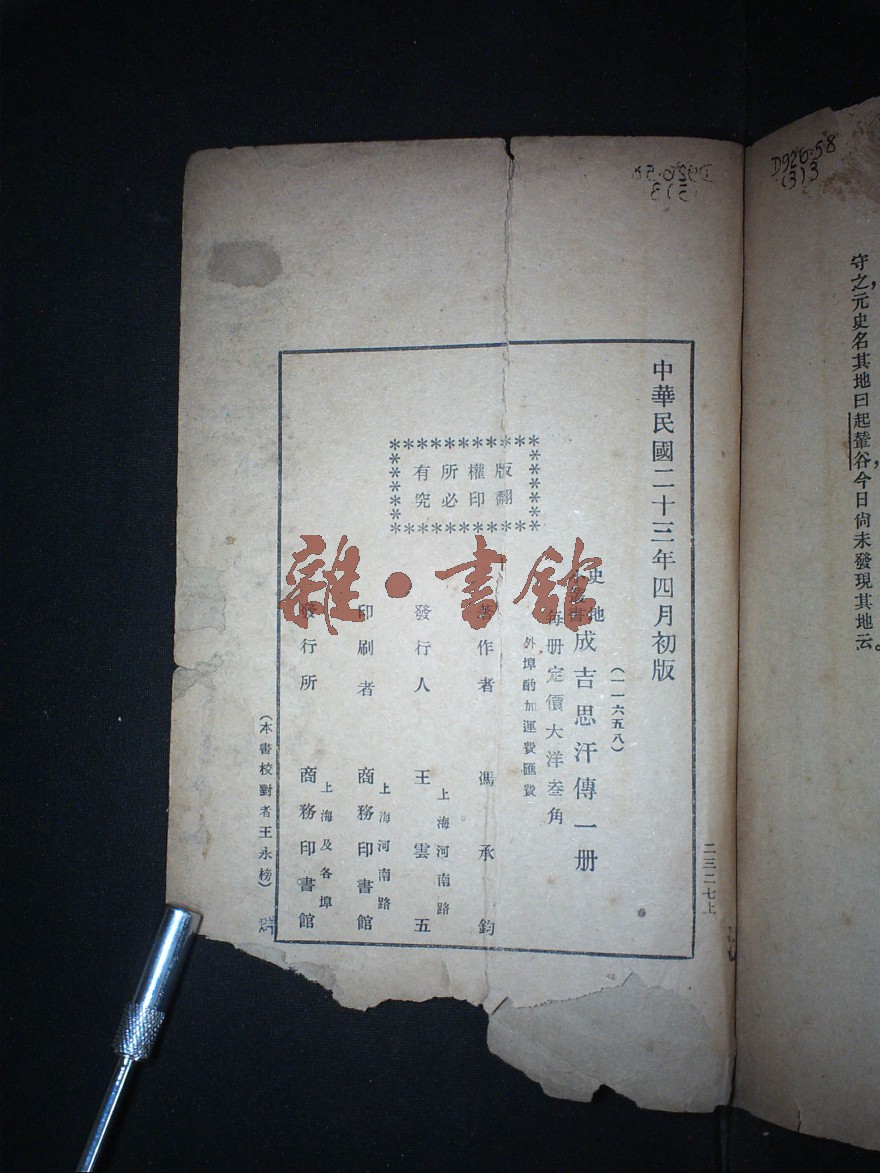 D926·58
(3)3
守之，元史名其地曰起輦谷，今日尙未發現其地云。
中華民國二十三年四月初版
二三二七上
(一一六五八)
史地
小叢書
成吉思汗傳一册
每册定價大洋叁角
外埠酌加運費匯費
版權所有
翻印必究
著作者 馮承鈞
發行人 王雲五
上海河南路
印刷者 商務印書館
上海河南路
發行所 商務印書館
上海及各埠
(本書校對者王永榜)
雜·書館